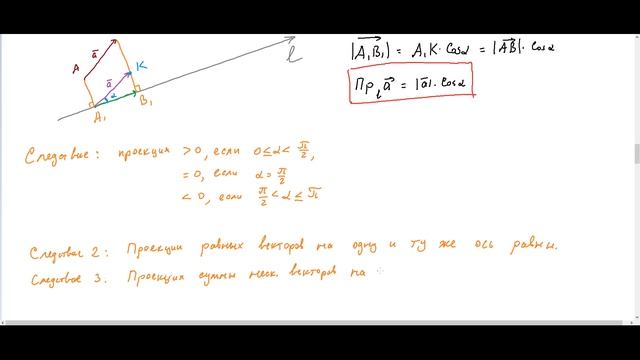 |A₁B₁| = A₁K · cosα = |AB| · cosα
Прₗ a = |a| · cosα
A a
a K
α
A₁ B₁
l
Следствие: проекция > 0, если 0 ≤ α < π/2,
= 0, если α = π/2
< 0, если π/2 < α ≤ π
Следствие 2: Проекции равных векторов на одну и ту же ось равны.
Следствие 3. Проекция суммы неск. векторов на